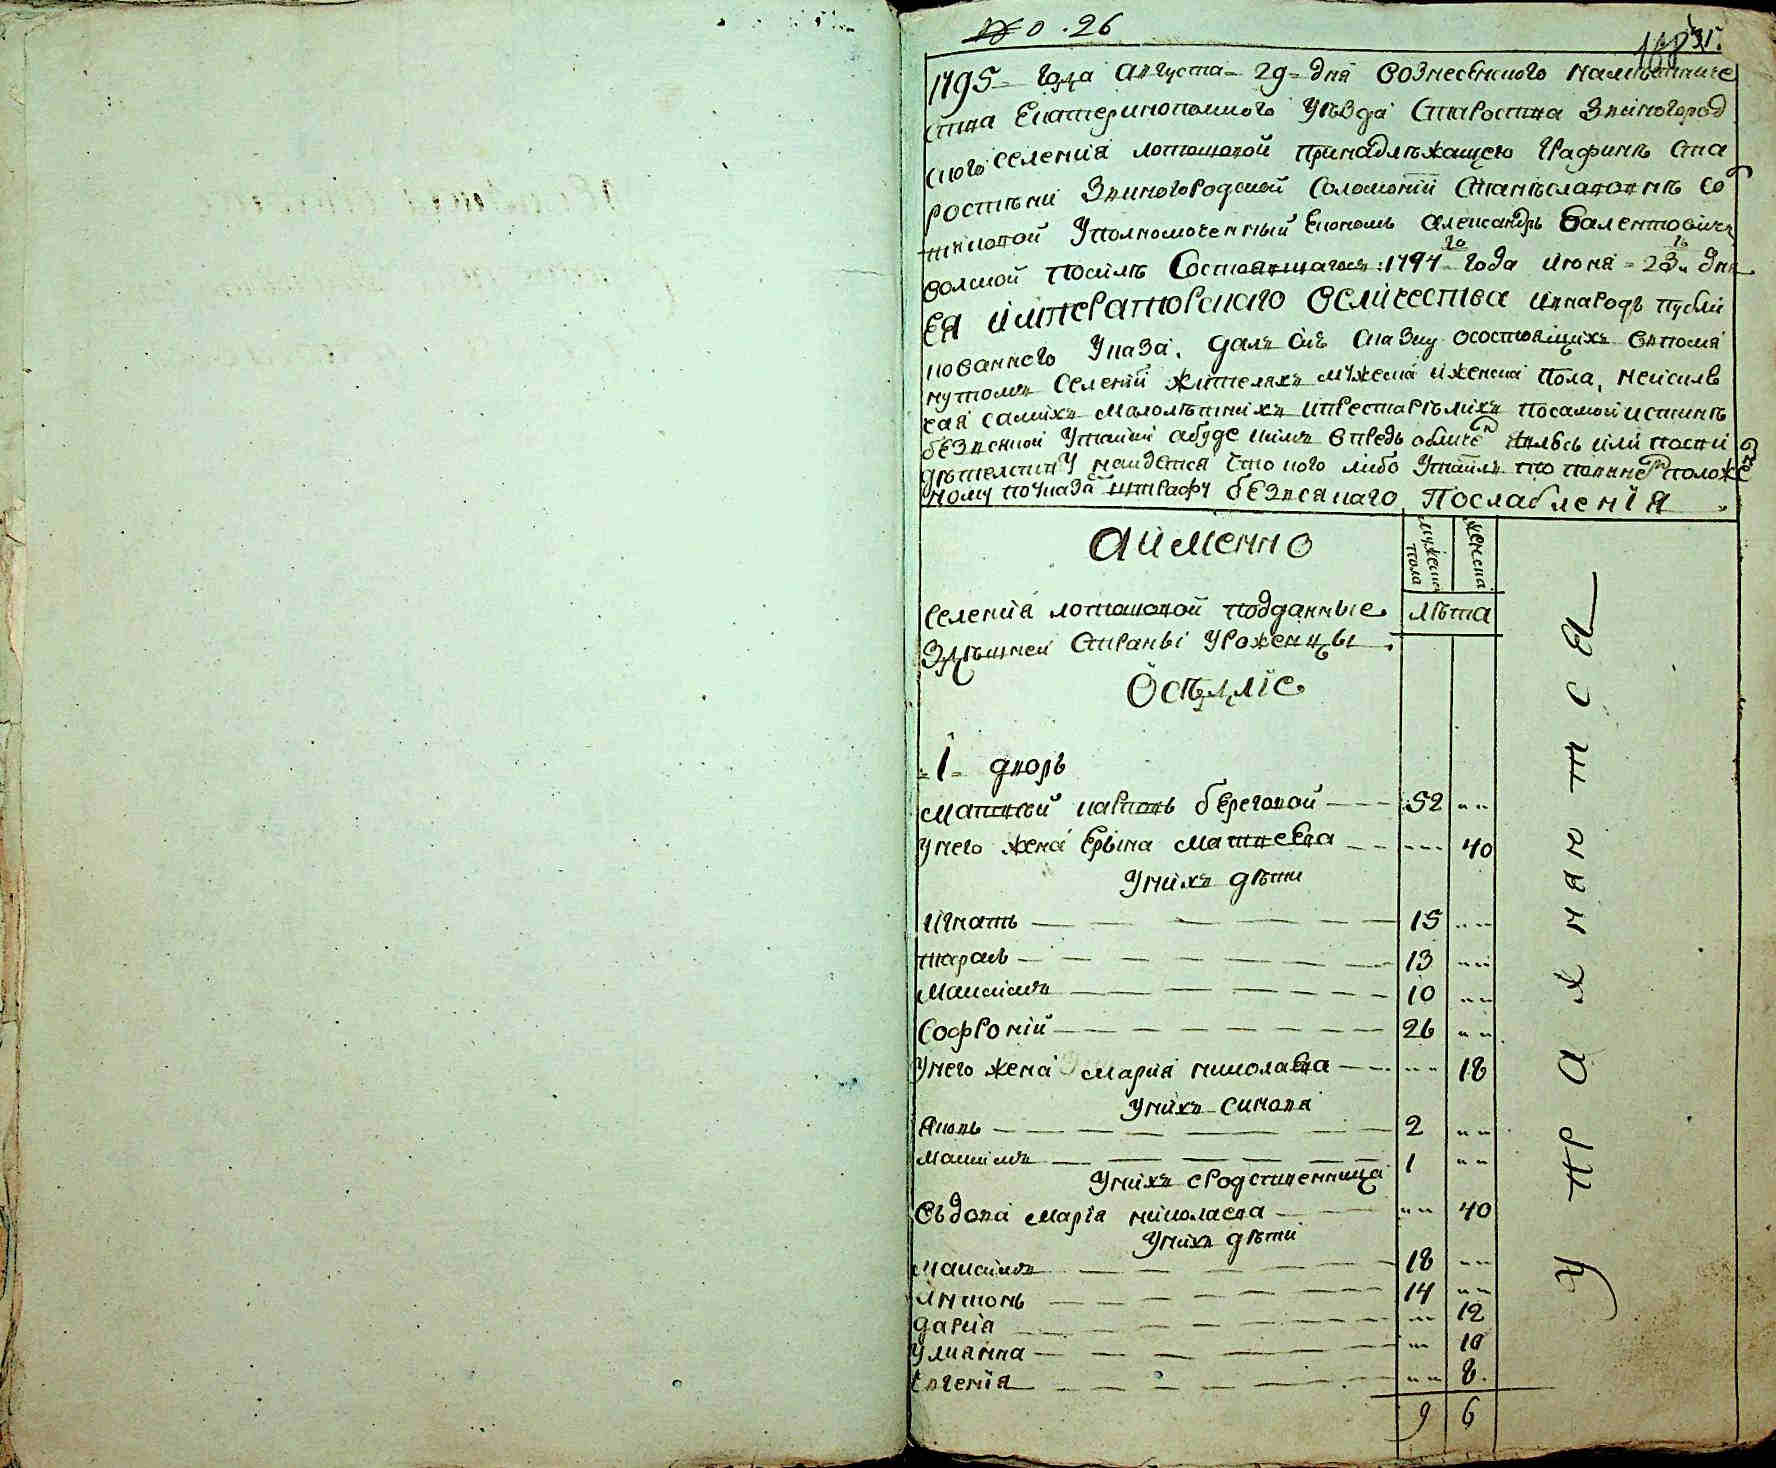 № 26
31.
1795 года августа 29 дня Вознесенского намѣстниче
ства Екатеринополского Уѣзда Староства Звиногород
ского селения лотошовой принадлѣжащею Графинѣ Ста
ростѣни Звиногородской Соломоніи Станѣславовнѣ
Уполномоченный Економъ александръ Валентовичъ
волской посилѣ Состоявшагося 1794 го года июня 23 го дня
Ея императорского величества внародъ публи
кованного Указа, далъ сию сказку осостоящихъ впомя
нутомъ селенії жителяхъ мужеска иженска пола, неисклю
чая самихъ малолѣтнихъ ипрестарѣлихъ посамой истиннѣ
безвсякой Утайки абуде кимъ впредь обличенъ явлюсь или посви
дѣтелству найдется что кого либо Утаилъ то повиненъ положен
ному поУказа штрафу безвсякаго Послабленія
аименно
мужеска пола
женска
Селенія лотошовой подданные
лѣта
Здѣшней Страны Уроженцы
Осѣдліе
1 дворъ
матвей карповъ береговой 52
Унего жена Ерына матвеева 40
Унихъ дѣти
Игнатъ 15
тарасъ 13
Максимъ 10
Софроній 26
Унего жена мария николаева 18
Унихъ синовя
Яковъ 2
максимъ 1
Унихъ сродственница
вѣдова марія николаева 40
Унихъ дѣти
максимъ 18
антонъ 14
дария 12
Улианна 10
Евгенія 8
9 6